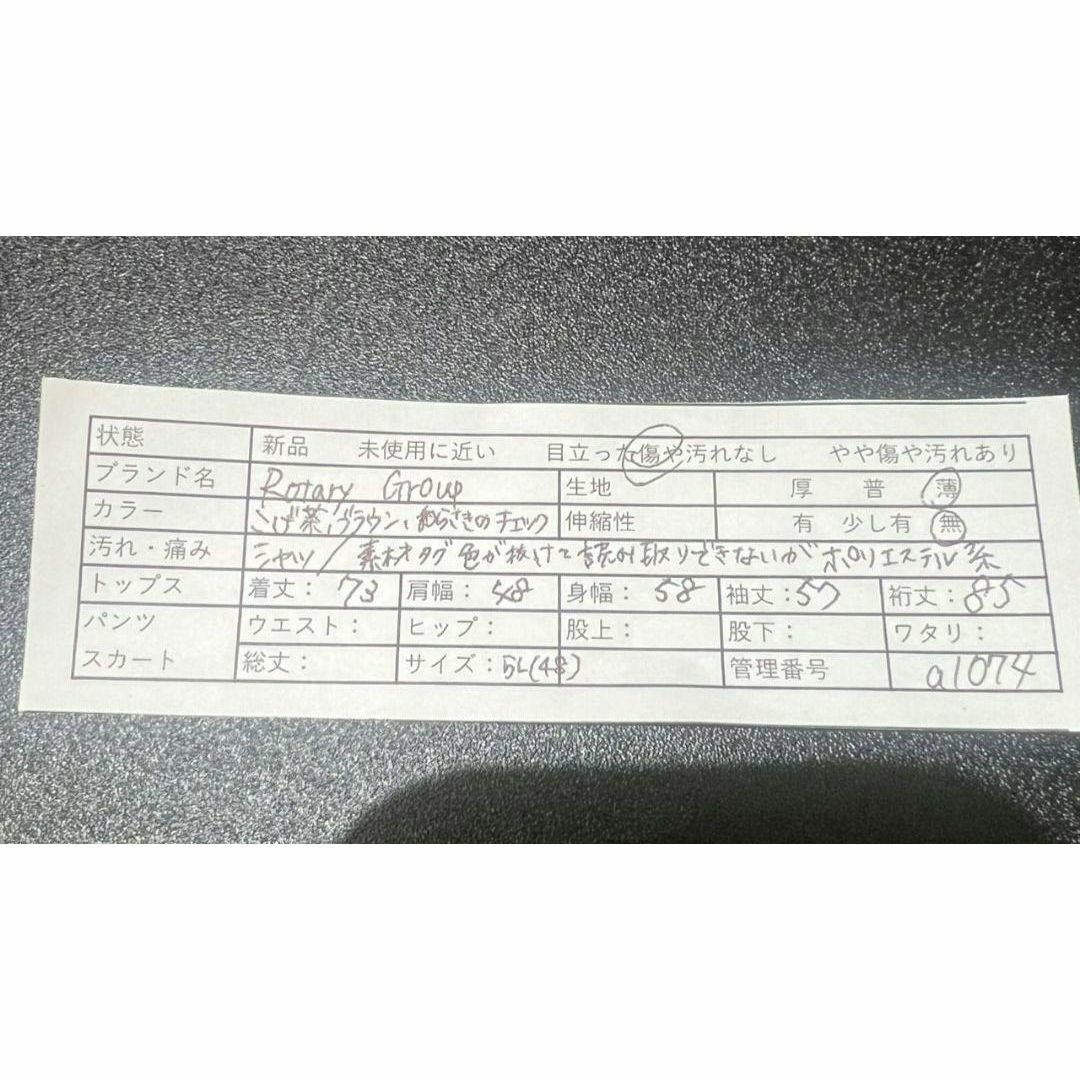 状態 新品 未使用に近い 目立った傷や汚れなし やや傷や汚れあり
ブランド名 Rotary Group 生地 厚 普 薄
カラー こげ茶、ブラウン、むらさきのチェック 伸縮性 有 少し有 無
汚れ・痛み シャツ/素材タグ色が抜けて読み取りできないがポリエステル系
トップス 着丈：73 肩幅：48 身幅：58 袖丈：57 裄丈：85
パンツ ウエスト： ヒップ： 股上： 股下： ワタリ：
スカート 総丈： サイズ：5L(48) 管理番号 a1074